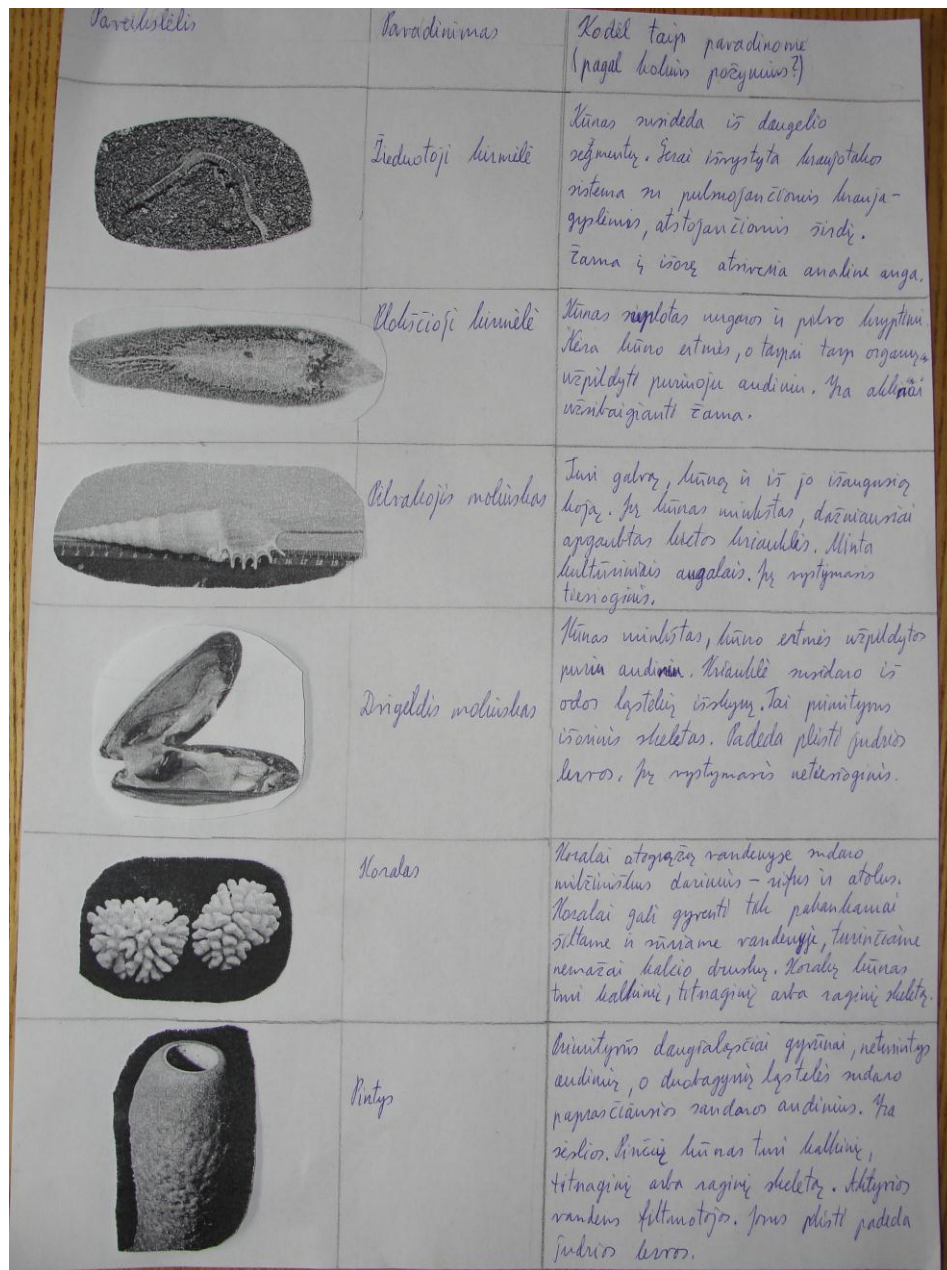 Paveikslėlis
Pavadinimas
Kodėl taip pavadinome
(pagal kokius požymius?)
Žieduotoji kirmėlė
Kūnas susideda iš daugelio
segmentų. Gerai išvystyta kraujotakos
sistema su pulsuojančiomis krauja-
gyslėmis, atstojančiomis širdį.
Žarna į išorę atsiveria analine anga.
Plokščioji kirmėlė
Kūnas suplotas nugaros ir pilvo kryptimi.
Nėra kūno ertmės, o tarpai tarp organų
užpildyti puriuoju audiniu. Yra aklinai
užsibaigianti žarna.
Pilvakojis moliuskas
Turi galvą, kūną ir iš jo išaugusią
koją. Jų kūnas minkštas, dažniausiai
apgaubtas kietos kriauklės. Minta
kultūriniais augalais. Jų vystymasis
tiesioginis.
Dvigeldis moliuskas
Kūnas minkštas, kūno ertmės užpildytos
puriu audiniu. Kriauklė susidaro iš
odos ląstelių išskyrų. Tai primityvus
išorinis skeletas. Padeda plisti judrios
lervos. Jų vystymasis netiesioginis.
Koralas
Koralai atogrąžų vandenyse sudaro
milžiniškus darinius – rifus ir atolus.
Koralai gali gyventi tik pakankamai
šiltame ir sūriame vandenyje, turinčiame
nemažai kalcio druskų. Koralų kūnas
turi kalkinį, titnaginį arba raginį skeletą.
Pintys
Primityvūs daugialąsčiai gyvūnai, neturintys
audinių, o duobagyvių ląstelės sudaro
paprasčiausios sandaros audinius. Yra
sėslios. Pinčių kūnas turi kalkinį,
titnaginį arba raginį skeletą. Aktyvios
vandens filtruotojos. Joms plisti padeda
judrios lervos.